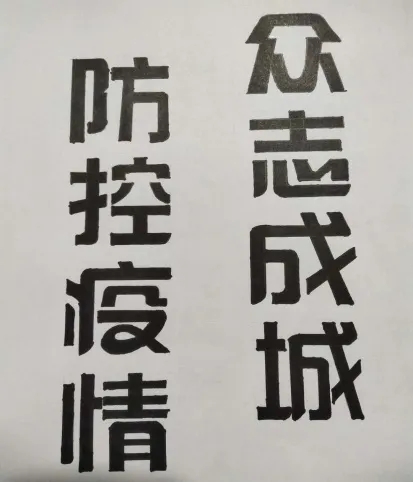 众志成城
防控疫情